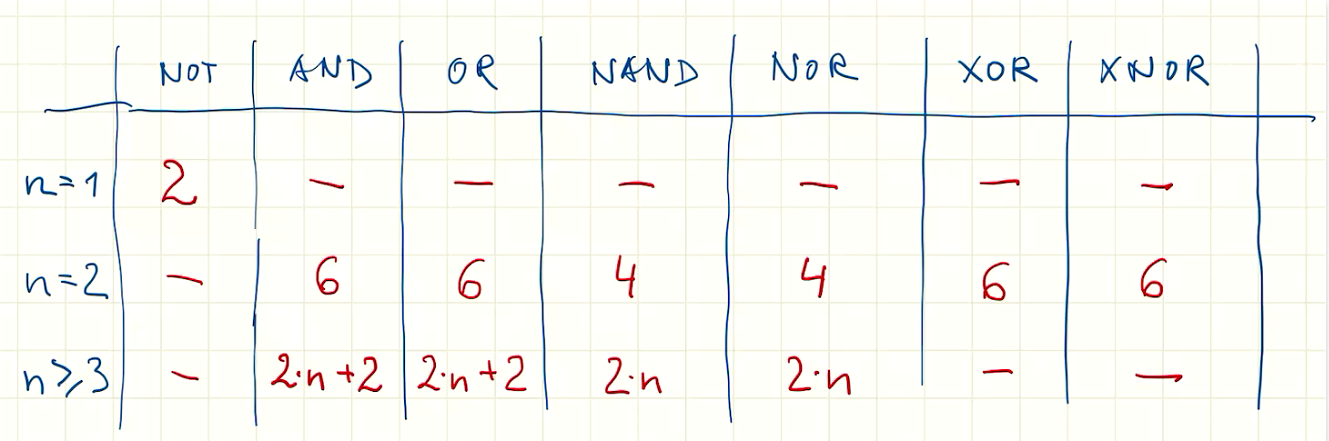 NOT AND OR NAND NOR XOR XNOR
n=1 2 – – – – – –
n=2 – 6 6 4 4 6 6
n≥3 – 2·n+2 2·n+2 2·n 2·n – –